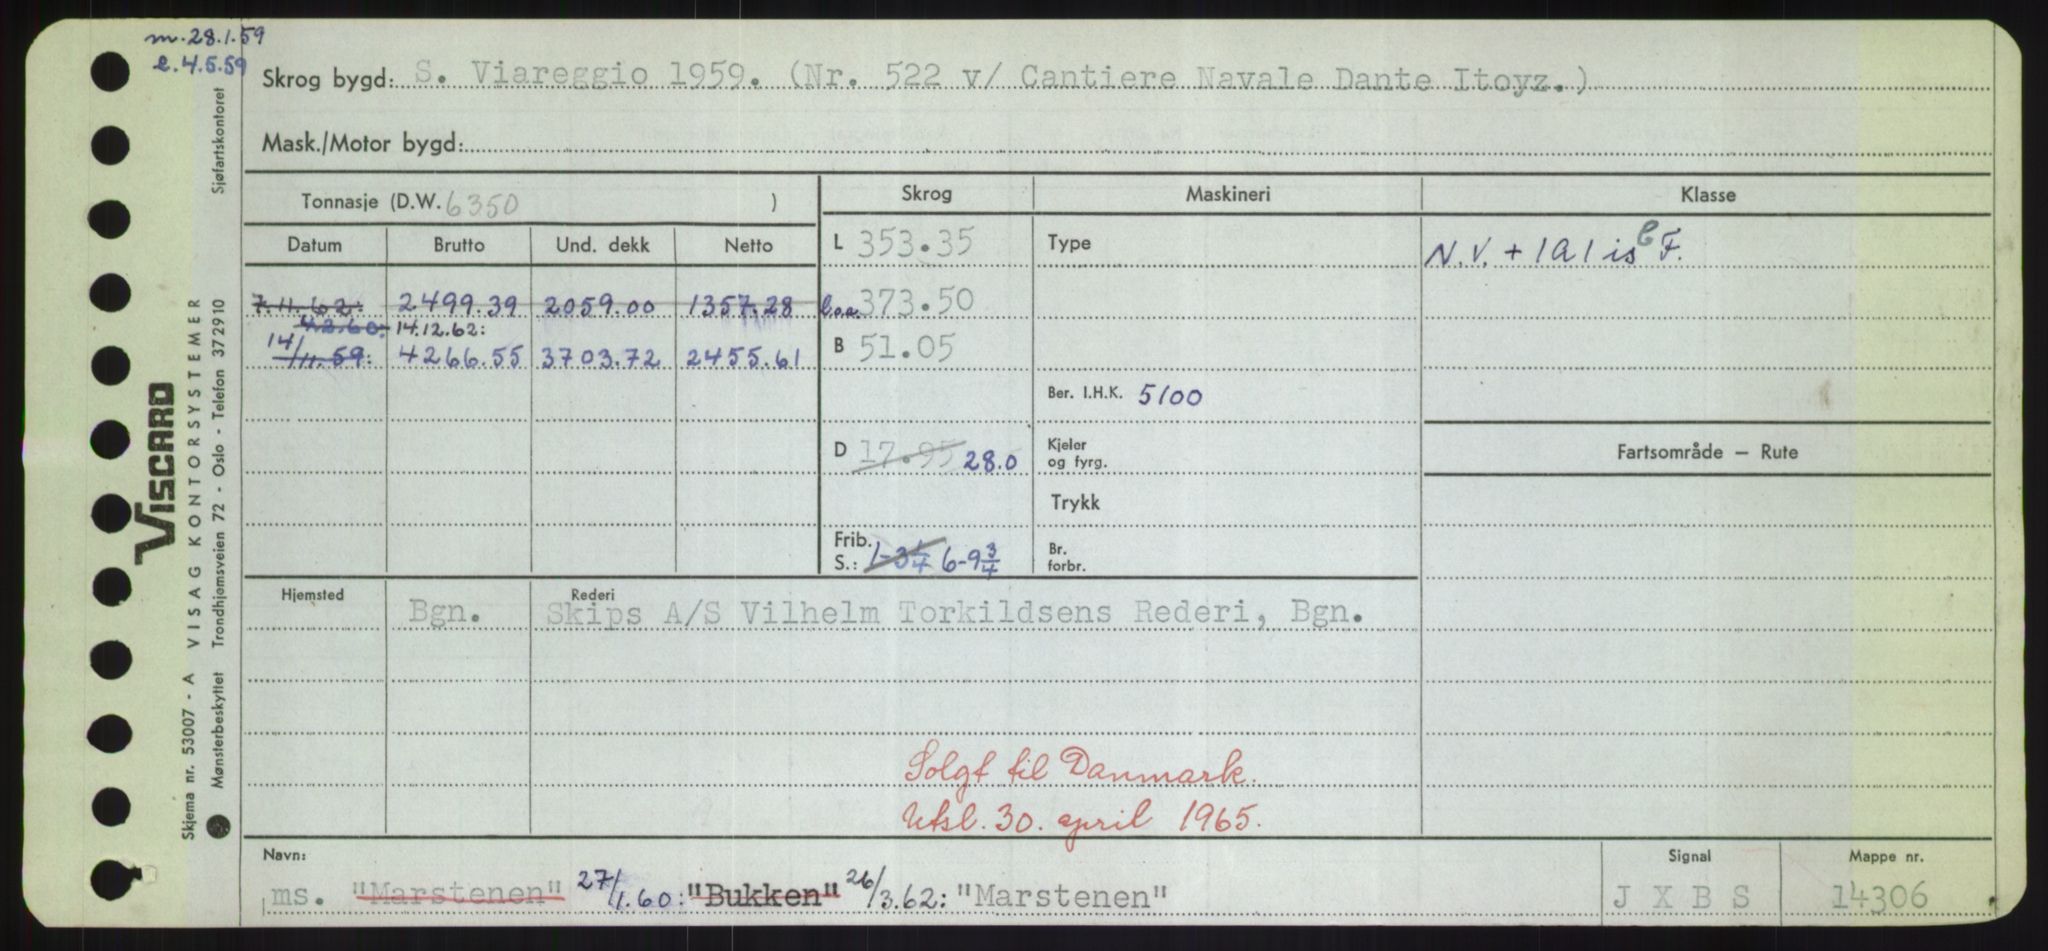 m. 28.1.59
l. 4.5.59
Skrog bygd: S. Viareggio 1959. (Nr. 522 v/ Cantiere Navale Dante Itoyz.)
Mask./Motor bygd:
Tonnasje (D.W. 6350 )
Skrog
Maskineri
Klasse
Datum
Brutto
Und. dekk
Netto
L 353.35
Type
N.V. + 1A1 is C F.
7.11.62: 2499.39 2059.00 1357.28
l.o.a. 373.50
4.2.60: 14.12.62:
14/11.59: 4266.55 3703.72 2455.61
B 51.05
Ber. I.H.K. 5100
D 17.95 28.0
Kjeler
og fyrg.
Fartsområde — Rute
Trykk
Frib.
S.: 1-3 1/4 6-9 3/4
Br.
forbr.
Hjemsted
Rederi
Bgn. Skips A/S Vilhelm Torkildsens Rederi, Bgn.
Solgt til Danmark.
Utsl. 30. april 1965.
Navn:
Signal
Mappe nr.
ms. "Marstenen" 27/1.60: "Bukken" 26/3.62: "Marstenen"
J X B S
14306
Skjema nr. 53007 - A VISAG KONTORSYSTEMER
VISCARD
Mønsterbeskyttet Trondhjemsveien 72 - Oslo - Telefon 372910 Sjøfartskontoret